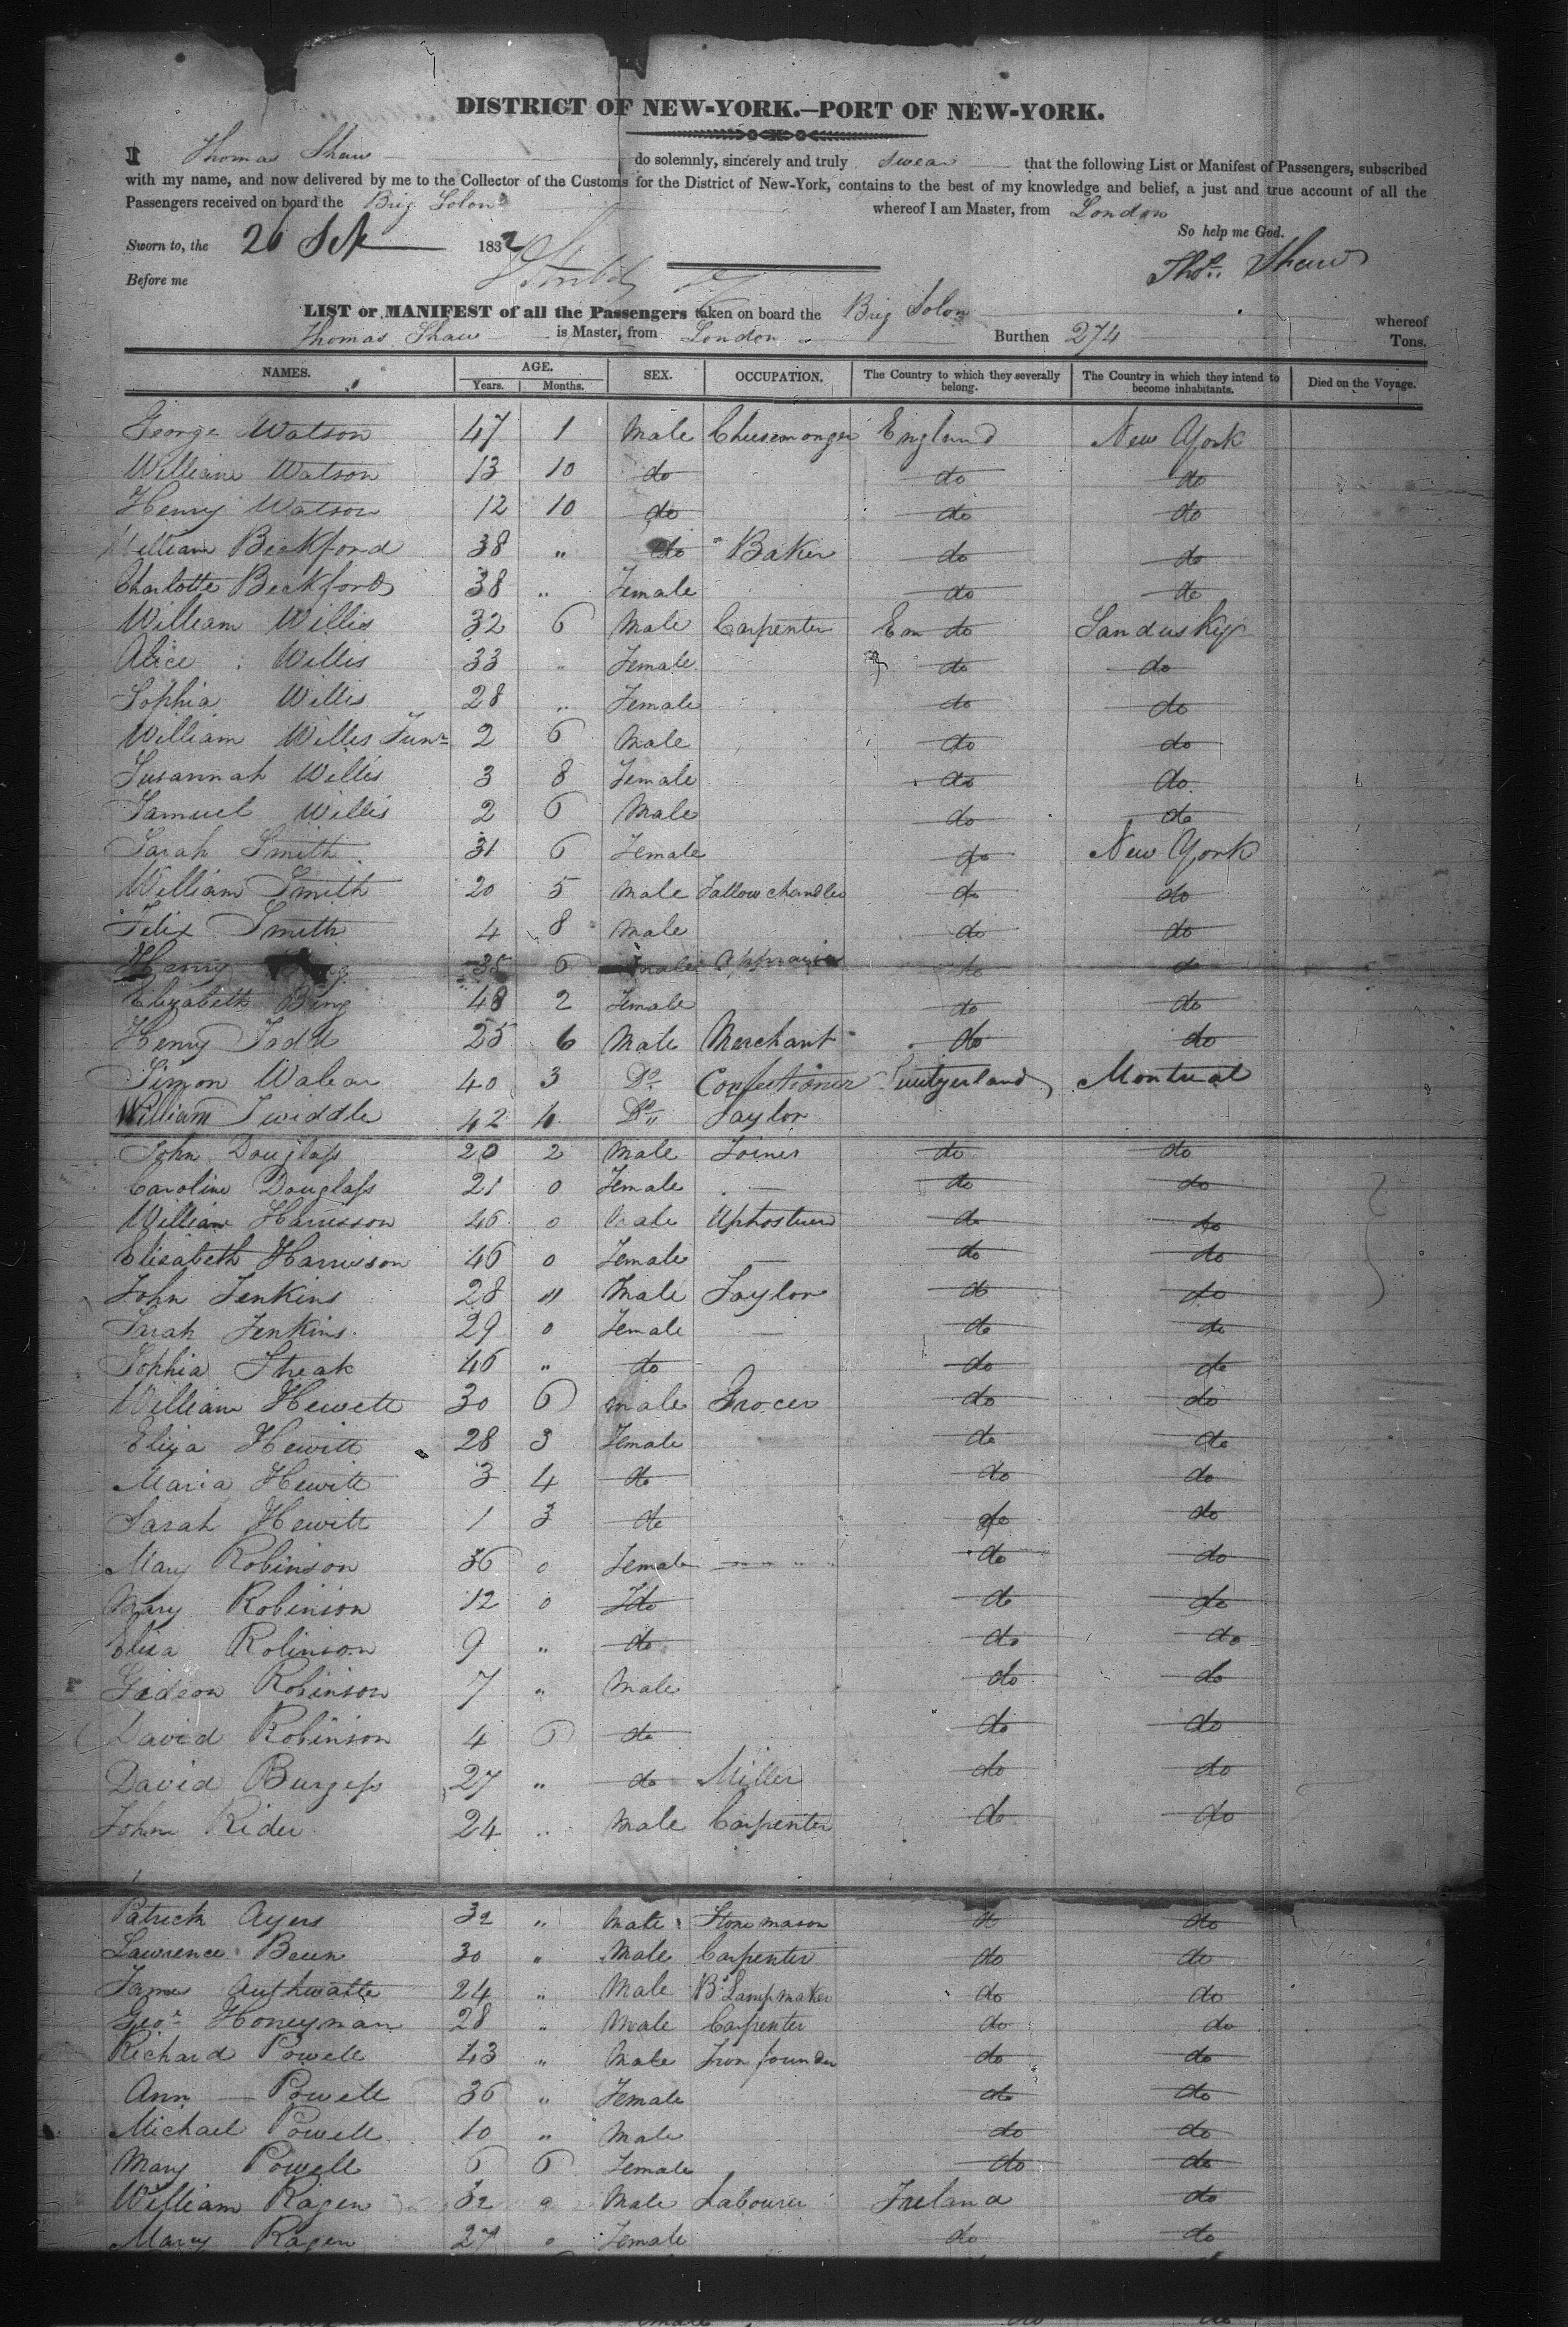 DISTRICT OF NEW-YORK.—PORT OF NEW-YORK.
I Thomas Shaw do solemnly, sincerely and truly swear that the following List or Manifest of Passengers, subscribed
with my name, and now delivered by me to the Collector of the Customs for the District of New-York, contains to the best of my knowledge and belief, a just and true account of all the
Passengers received on board the Brig Solon whereof I am Master, from London
So help me God.
Sworn to, the 26 Sep 1832
Thos. Shaw
Before me
LIST or MANIFEST of all the Passengers taken on board the Brig Solon whereof
Thomas Shaw is Master, from London Burthen 274 Tons.
NAMES. AGE. Years. Months. SEX. OCCUPATION. The Country to which they severally belong. The Country in which they intend to become inhabitants. Died on the Voyage.
George Watson 47 1 Male Cheesemonger England New York
William Watson 13 10 do do do
Henry Watson 12 10 do do do
William Beckford 38 " do Baker do do
Charlotte Beckford 38 " Female do do
William Willis 32 6 Male Carpenter do Sandusky
Alice Willis 33 " Female do do
Sophia Willis 28 " Female do do
William Willis Junr 2 6 Male do do
Susannah Willis 3 8 Female do do
Samuel Willis 2 6 Male do do
Sarah Smith 31 6 Female do New York
William Smith 20 5 Male Tallow chandler do do
Felix Smith 4 8 Male do do
Henry 35 6 Male do do
Elizabeth Bing 48 2 Female do do
Henry Tadd 25 6 Male Merchant do do
Simon 40 3 Do Confectioner Switzerland Montreal
William Twiddle 42 4 Do Taylor
John Douglass 20 2 Male Joiner do do
Caroline Douglass 21 0 Female — do do
William Harrisson 46 0 Male Upholsterer do do
Elisabeth Harrisson 46 0 Female — do do
John Jenkins 28 " Male Taylor do do
Sarah Jenkins 29 0 Female — do do
Sophia Sheak 46 " do do do
William Hewett 30 6 male Grocer do do
Eliza Hewitt 28 3 Female do do
Maria Hewitt 3 4 do do do
Sarah Hewitt 1 3 do do do
Mary Robinson 36 0 Female do do
Mary Robinson 12 0 do do do
Eliza Robinson 9 " do do do
Gideon Robinson 7 " Male do do
David Robinson 4 6 do do do
David Burgess 27 " do Miller do do
John Rider 24 " Male Carpenter do do
Patrick Ayers 32 " Male Stone mason do do
Lawrence Been 30 " Male Carpenter do do
James Authwatte 24 " Male Bs Lampmaker do do
Geor Honeyman 28 " Male Carpenter do do
Richard Powell 43 " Male Iron founder do do
Ann Powell 36 " Female do do
Michael Powell 10 " Male do do
Mary Powell 6 6 Female do do
William Ragen 32 0 Male Labourer Ireland do
Mary Ragen 27 0 Female do do